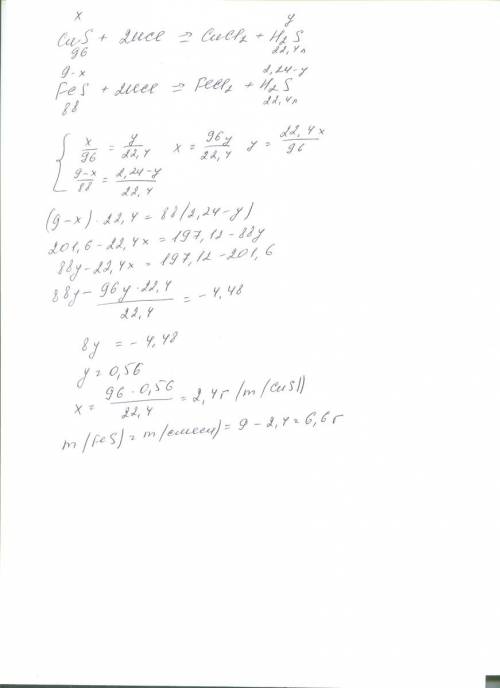 x y
CuS + 2HCl = CuCl₂ + H₂S
96 22,4л
9-x 2,24-y
FeS + 2HCl = FeCl₂ + H₂S
88 22,4л
{ x/96 = y/22,4 x = 96y/22,4 y = 22,4x/96
9-x/88 = 2,24-y/22,4
(9-x)·22,4 = 88(2,24-y)
201,6-22,4x = 197,12-88y
88y-22,4x = 197,12-201,6
88y - 96y·22,4/22,4 = -4,48
8y = -4,48
y = 0,56
x = 96·0,56/22,4 = 2,4г (m(CuS))
m(FeS) = m(смеси) = 9-2,4 = 6,6г